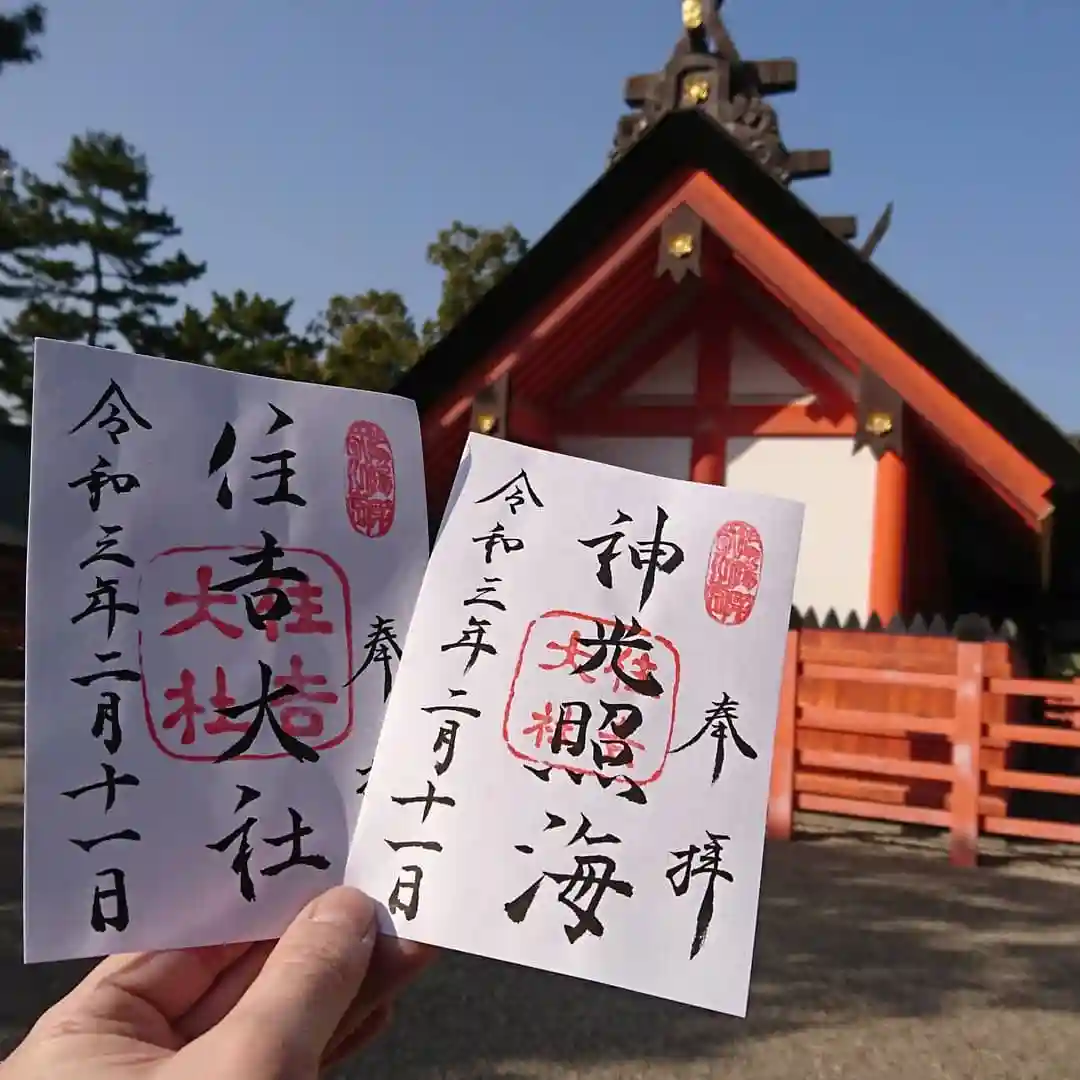 奉
住吉大社
住吉大社
令和三年二月十一日
奉拝
神光照海
住吉大社
令和三年二月十一日